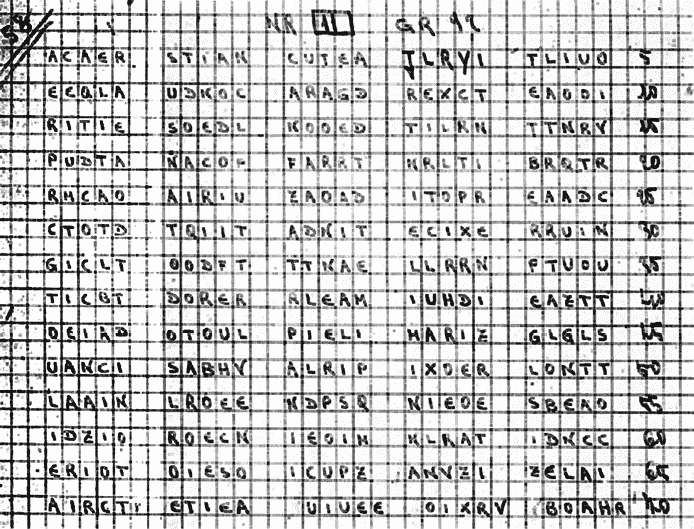 58
NR 11 GR 92
ACAER STIAN CUTEA TLRVI TLIUO 5
ECQLA UDNOC ARAGD REXCT EAODI 10
RITIE SOEDL NOOED TILRN TTNRV 15
PUDTA NACOF FARRT NRLTI BRQTR 20
RMCAO AIRIU ZAOAD ITOPR EAADC 25
CTOTD TQIIT ADNIT ECIXE RRUIN 30
GICLT OODFT TTNAE LLRRN PTUOU 35
TICBT DORER RLEAM IUHDI EAZTT 40
OEIAD OTOUL PIELI MARIZ GLGLS 45
UANCI SABHV ALRIP IXOER LONTT 50
LAAIN LROEE NDPSQ NIEOE SBEAO 55
IDZIO ROECN IEOIM NLRAT IDNCC 60
ERIOT DIESO ICUPZ ANVZI ZELAI 65
AIRCT ETIEA UIUEE OIXRV BOAHR 70